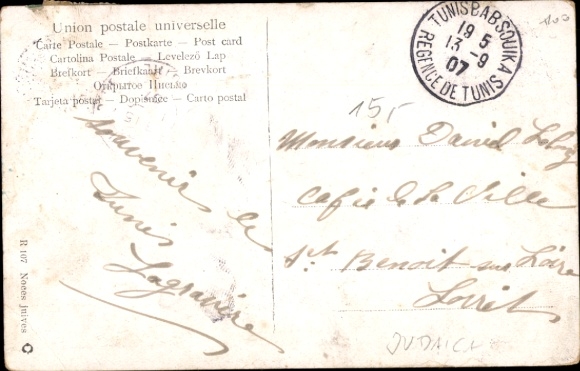 Union postale universelle
Carte Postale — Postkarte — Post card
Cartolina Postale — Levelező Lap
Brefkort — Briefkaart — Brevkort
Открытое Письмо
Tarjeta postal — Dopisnice — Carto postal
TUNIS BAB SOUIKA
19 5
13 -9
07
REGENCE DE TUNIS
100
15,-
Souvenir de
Tunis
Lagravière
Monsieur David
de la Ville
St. Benoit sur Loire
Loiret
JUDAICA
R 107 Noces juives